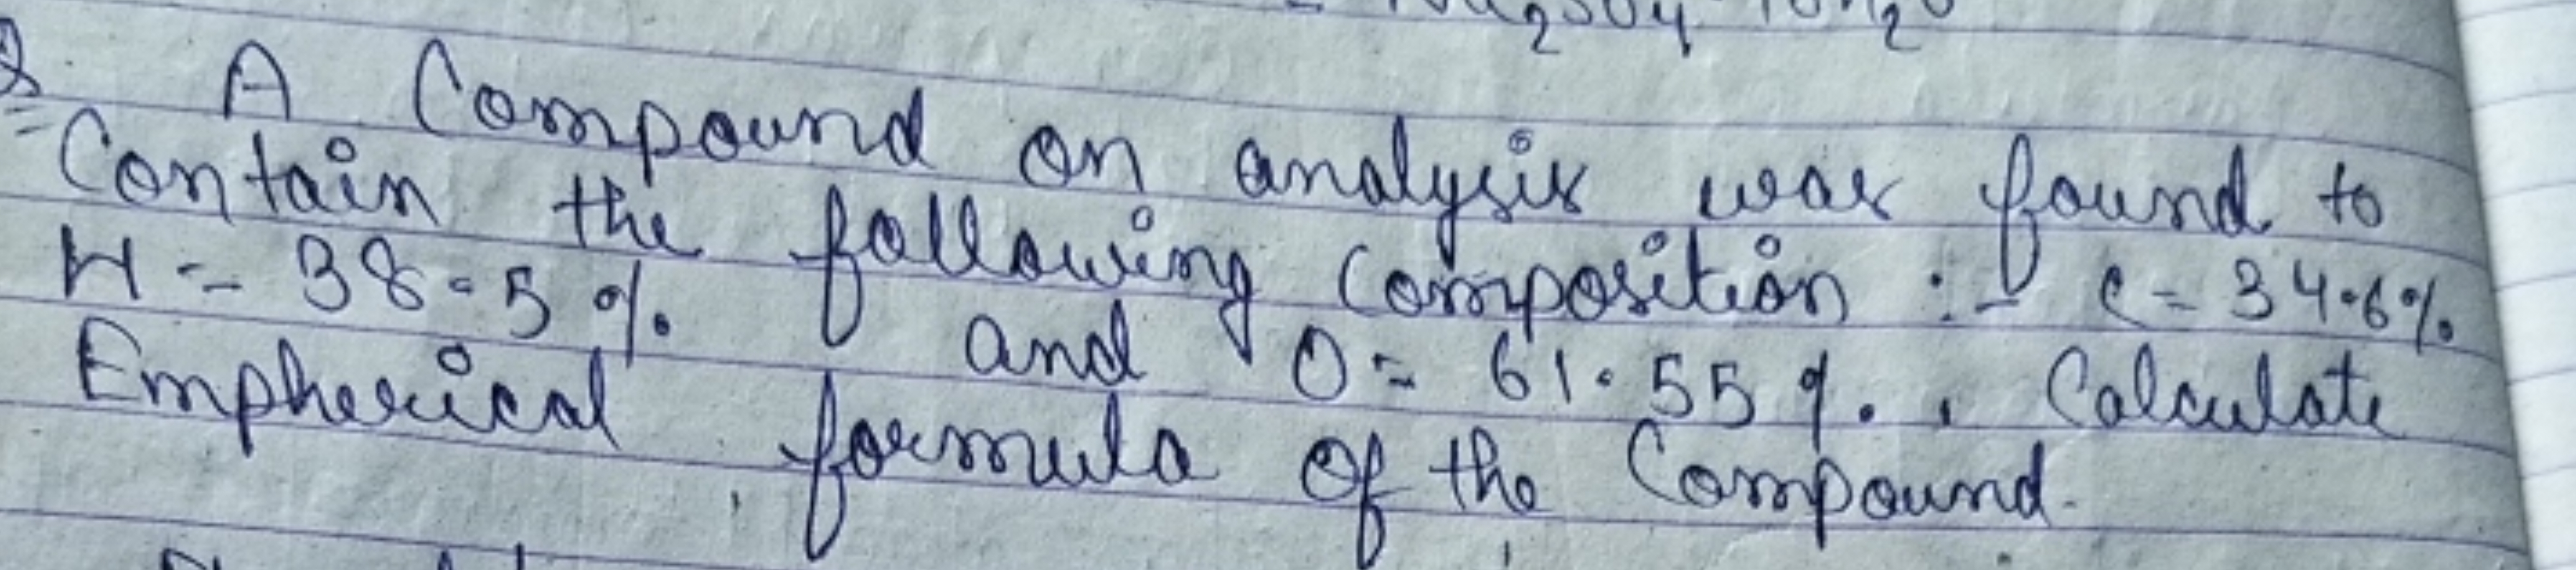 Na2SO4 10H2O
Q. A Compound on analysis was found to
Contain the following Composition :- C = 34.6%
H = 38.5 %. and O = 61.55 %. . Calculate
Empherical formula of the Compound.